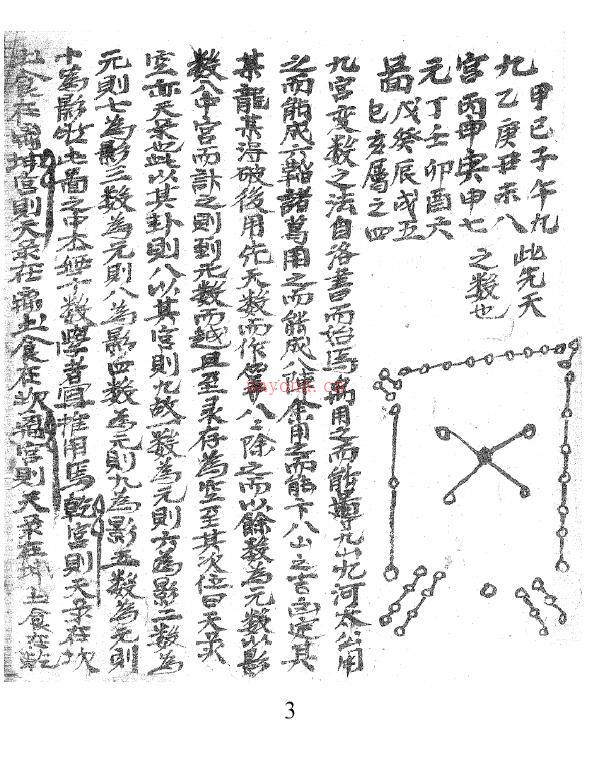 甲己子午九
九乙庚丑未八
宮丙申寅申七
元丁壬卯酉六
戊癸辰戌五
巳亥屬之四
此先天
之数也
九宮变数之法自洛書而始焉禹用之而能九山九河太公用
之而能成六韜諸葛用之而能成用之而能下八山之吉凶定其
某龍某得破後用先天数而作八八除之而以餘数為元数以影
数八中宮而計之則到元数而越且至录存為空至其次位曰天录
空而天录也此以其卦則八以其宮則九故一数為元則六為影二数為
元則七為影三数為元則八為影四数為元則九為影五数為元則
十為影此面之中本無十数學者宜推用焉乾宮則天录在坎
土食在坤宮則天录在土食在坎宮則天录在土食在乾
3